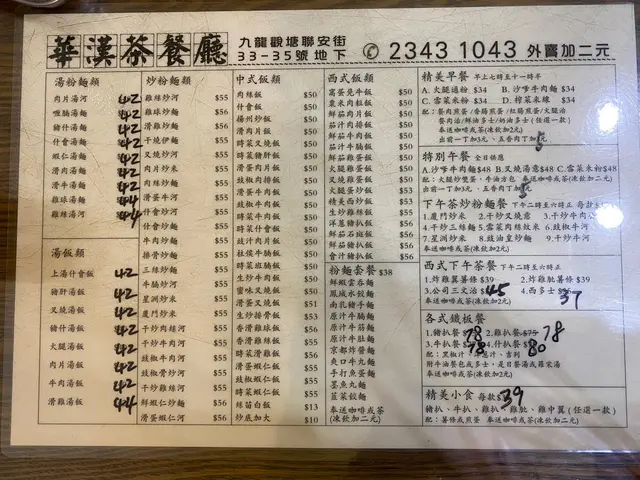 華漢茶餐廳
九龍觀塘聯安街
33-35號地下
2343 1043 外賣加二元
湯粉麵類
肉片湯河 42
豬什湯麵 42
什會湯麵 42
蝦仁湯麵 42
滑肉湯麵 42
滑牛湯麵 42
雞球湯麵 44
雞絲湯河 44
湯飯類
上湯什會飯 42
豬肝湯飯 42
叉燒湯飯 42
豬什湯飯 42
火腿湯飯 42
肉片湯飯 42
牛肉湯飯 42
滑雞湯飯 44
炒粉麵類
雞絲炒河 $55
雞球炒麵 $55
滑雞炒麵 $55
干燒伊麵 $55
叉燒炒河 $55
肉片炒米 $55
肉絲炒麵 $55
滑蛋牛河 $55
什會炒河 $55
什會炒麵 $55
牛肉炒麵 $55
排骨炒麵 $55
三絲炒麵 $55
牛腩炒河 $55
星洲炒米 $55
廈門炒米 $55
干炒肉絲河 $55
干炒牛肉河 $55
豉椒牛肉河 $55
豉椒骨炒河 $55
干炒雞絲河 $56
鮮蝦仁炒麵 $56
滑蛋蝦仁河 $56
中式飯類
肉絲飯 $50
什會飯 $50
揚州炒飯 $50
滑肉片飯 $50
時菜叉燒飯 $50
時菜豬肝飯 $50
滑蛋肉片飯 $50
豉椒肉排飯 $50
滑蛋叉燒飯 $50
時菜牛肉飯 $50
滑蛋牛肉飯 $50
豉汁肉片飯 $50
柱侯牛腩飯 $50
時菜班腩飯 $50
生炒牛肉飯 $50
蜜味叉燒飯 $50
生炒排骨飯 $53
香滑雞球飯 $56
香滑雞絲飯 $56
時菜滑雞飯 $56
滑蛋蝦仁飯 $55
豉椒蝦仁飯 $55
時菜蝦仁飯 $55
絲苗白飯 $13
炒底加大 $10
西式飯類
窩蛋免牛飯 $50
粟米肉粒飯 $50
鮮茄肉片飯 $50
茄汁肉排飯 $50
鮮茄牛肉飯 $50
茄汁牛腩飯 $50
鮮茄雞蛋飯 $50
火腿雞蛋飯 $50
火腿蛋炒飯 $53
精美西炒飯 $53
生炒雞絲飯 $55
洋蔥豬扒飯 $56
鮮茄石班飯 $56
鮮茄豬扒飯 $56
會汁豬扒飯 $56
粉麵套餐 $38
鮮蝦雲吞麵
鳳城水餃麵
南乳豬手麵
原汁牛腩麵
原汁牛筋麵
原汁牛肚麵
京都炸醬麵
爽口牛丸麵
手打魚蛋麵
墨魚丸麵
韮菜餃麵
奉送咖啡或茶
(凍飲加二元)
精美早餐 早上七時至十一時半
A. 火腿通粉 $34 B. 沙爹牛肉麵 $34
C. 雪菜米粉 $34 D. 榨菜米線 $34
配：餐肉煎蛋/香腸煎蛋/紅腸煎蛋/火腿治
餐肉治/鮮油多士/奶油多士(任選一款)
奉送咖啡或茶(凍飲加2元)
特別午餐 全日供應
A. 沙爹牛肉麵 B. 叉燒湯意 C. 雪菜米粉 $48
配：火腿炒雙蛋、牛油方包 奉送咖啡或茶(凍飲加2元)
下午茶炒粉麵類 下午二時至六時正
1. 廈門炒米 2. 干炒叉燒意 3. 干炒牛肉
4. 干炒三絲麵 5. 雪菜肉絲炆米 6. 豉椒牛河
7. 星洲炒米 8. 豉油皇炒麵 9. 干炒牛河
奉送咖啡或茶(凍飲加2元)
西式下午茶餐 下午二時至六時正
1. 炸雞翼薯條 $39 2. 炸雞肶薯條 $39
3. 公司三文治 $45 4. 西多士 37
各式鐵板餐
1. 豬扒餐 78 2. 雞扒餐 78
3. 牛扒餐 78 4. 什扒餐 80
附牛油餐包或多士，是日餐湯或羅宋湯
奉送咖啡或茶(凍飲加2元)
精美小食 每款 39
豬扒、牛扒、雞扒、雞肶、雞中翼(任選一款)
配：薯條或煎蛋 奉送咖啡或茶(凍飲加二元)